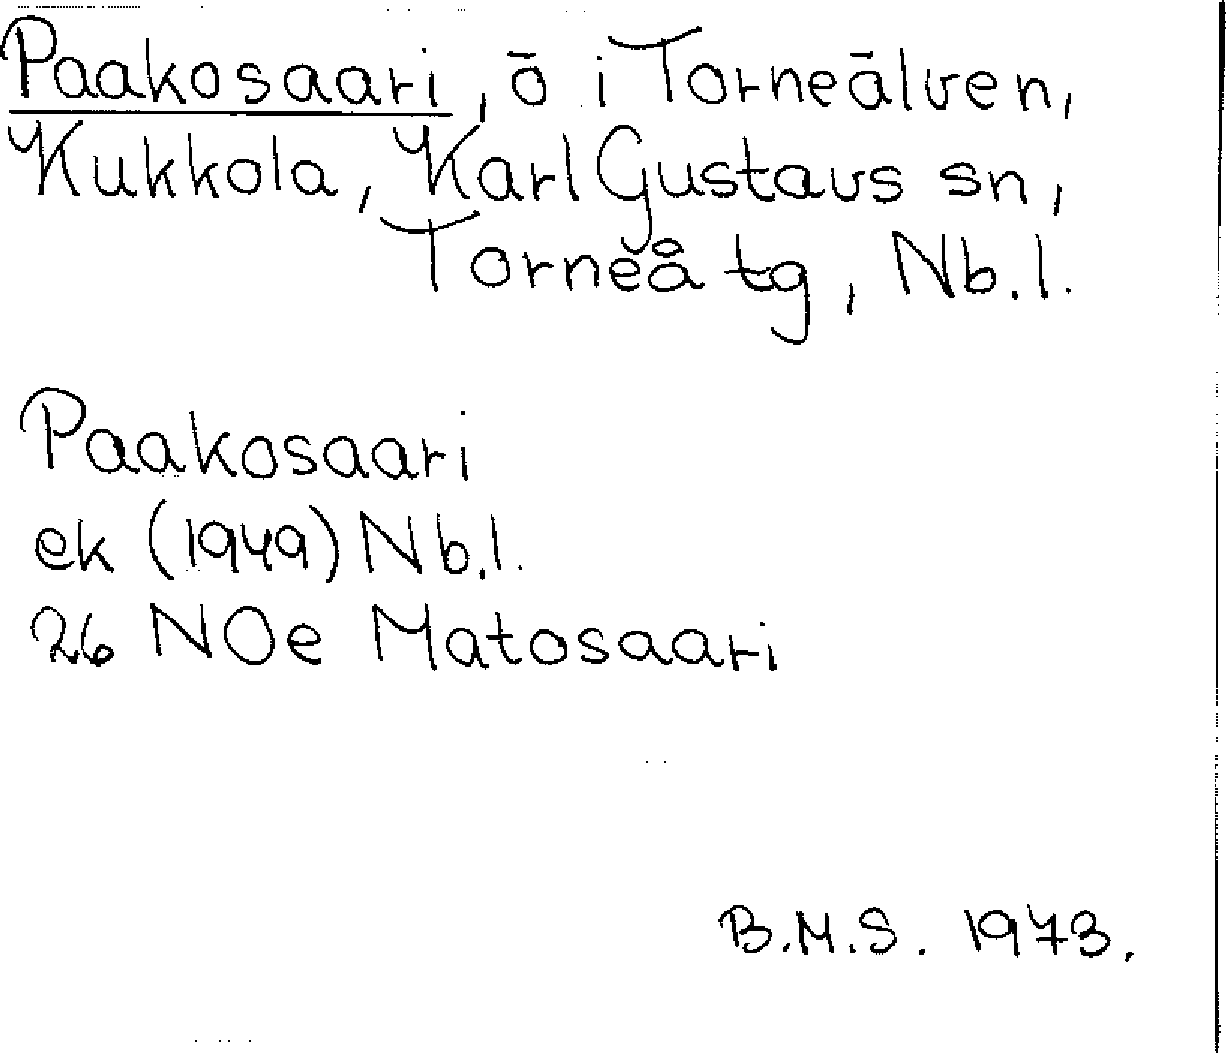 Paakosaari, ö i Torneälven,
Kukkola, Karl Gustavs sn,
Torneå tg, Nb.l.
Paakosaari
ek (1949) Nb.l.
26 NOe Matosaari
B.M.S. 1973.